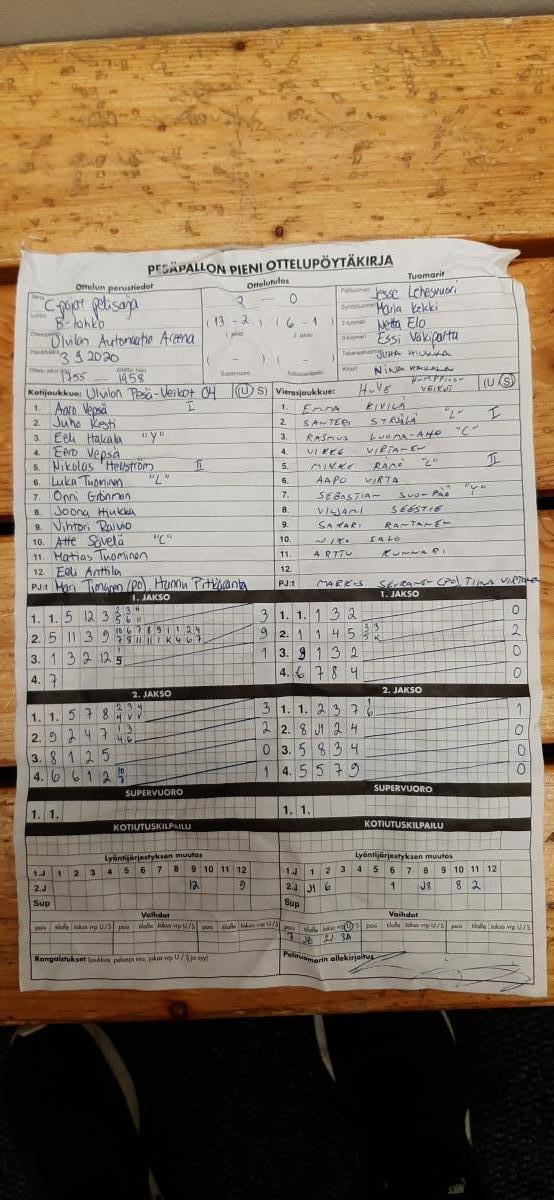 PESÄPALLON PIENI OTTELUPÖYTÄKIRJA
Ottelun perustiedot Ottelutulos Tuomarit
Sarja C-pojat pelisarja 2 - 0 Pelituomari Jesse
Lohko B-lohko (13 - 2) (6 - 1) Syöttötuomari Maria Kekki
Ulvilan Automatio Areena 1. jakso 2. jakso 2-tuomari Netta Elo
Päivämäärä 3.9.2020 (-) (-) Essi Väkiparta
Ottelu alkoi 1755 - 1958 Supervuoro Kotiutuskilpailu
Kirjuri
Kotijoukkue: Ulvilan Pesä-Veikot 04 (U) S)
Vierasjoukkue: HuVe HUMPPILAN VEIKOT (U (S)
1. Aaro Vepsä I
2. Juho Kesti
3. Eeli Hakala "Y"
4. Eero Vepsä
5. Nikolas Hellström II
6. Luka Tuominen "L"
7. Onni Grönman
8. Joona Hiukka
9. Vihtori Raivio
10. Atte Sävelä "C"
11. Matias Tuominen
12. Eeli Anttila
PJ:t Mari Timonen (PO) Hannu Pitkäranta
1. EMMA KIVILÄ
2. SANTERI SYRJÄLÄ "L" I
3. RASMUS LUOMA-AHO "C"
4. VIRTANEN
5. MIKKE RÄMÖ "L" II
6. AAPO VIRTA
7. SEBASTIAN SUONPÄÄ "Y"
8. VILJAMI SEESTIE
9. SAKARI RANTANEN
10. NIKO SALO
11. ARTTU KUNNARI
12.
PJ:t MARKUS (PO) TIINA VIRTANEN
1. JAKSO 1. JAKSO
1. 1. 5 12 3 3
2. 5 11 3 9 9
3. 1 3 2 12 1
4. 7
1. 1. 1 3 2 0
2. 1 1 4 5 2
3. 9 1 3 2 0
4. 6 7 8 4 0
2. JAKSO 2. JAKSO
1. 1. 5 7 8 3
2. 9 2 4 7 2
3. 8 1 2 5 0
4. 6 6 12 1
1. 1. 2 3 7 1
2. 8 J1 2 4 0
3. 5 8 3 4 0
4. 5 5 7 9 0
SUPERVUORO SUPERVUORO
1. 1. 1. 1.
KOTIUTUSKILPAILU KOTIUTUSKILPAILU
Lyöntijärjestyksen muutos Lyöntijärjestyksen muutos
1.J 1 2 3 4 5 6 7 8 9 10 11 12
2.J 12 9
Sup
1.J 1 2 3 4 5 6 7 8 9 10 11 12
2.J J1 6 1 J8 8 2
Sup
Vaihdot Vaihdot
pois tilalle Jakso vrp U / S pois tilalle Jakso vrp U / S pois tilalle Jakso vrp U / S
pois tilalle Jakso vrp U / S pois tilalle Jakso vrp U / S pois tilalle Jakso vrp U / S
7 J8 2J 3A
Rangaistukset (joukkue, pelaaja nro, jakso vrp U / S ja syy)
Pelituomarin allekirjoitus